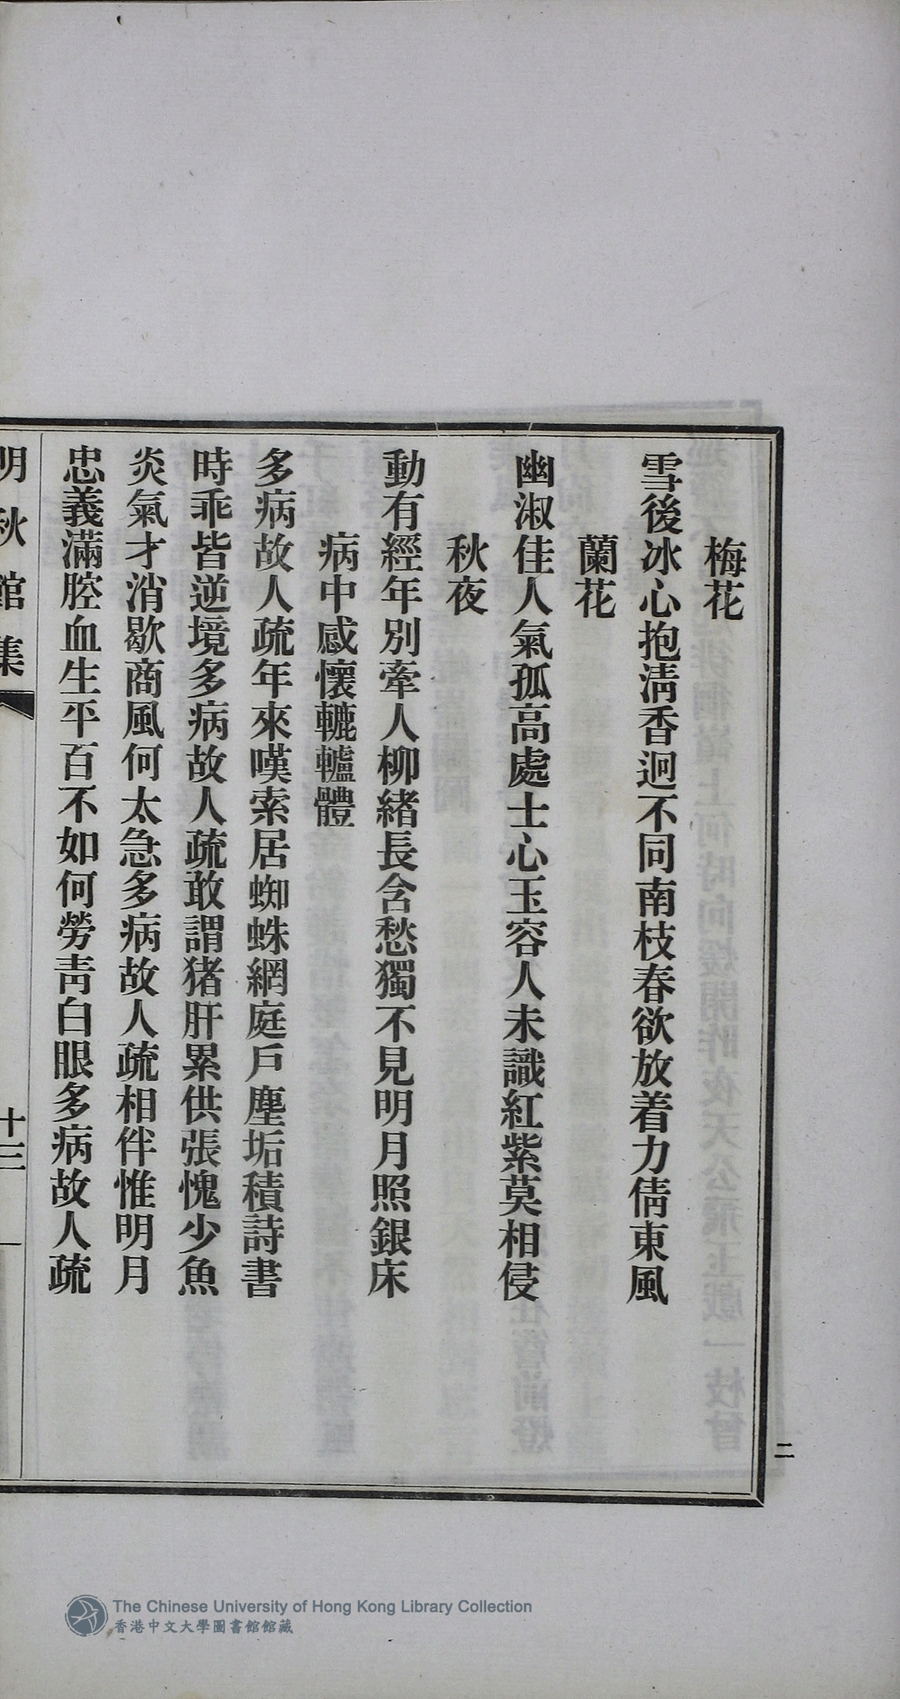 梅花
雪後冰心抱淸香迥不同南枝春欲放着力倩東風
蘭花
幽淑佳人氣孤高處士心玉容人未識紅紫莫相侵
秋夜
動有經年別牽人柳緒長含愁獨不見明月照銀床
病中感懷轆轤體
多病故人疏年來嘆索居蜘蛛網庭戶塵垢積詩書
時乖皆逆境多病故人疏敢謂猪肝累供張愧少魚
炎氣才消歇商風何太急多病故人疏相伴惟明月
忠義滿腔血生平百不如何勞靑白眼多病故人疏
明秋館集
十三
二
The Chinese University of Hong Kong Library Collection
香港中文大學圖書館館藏